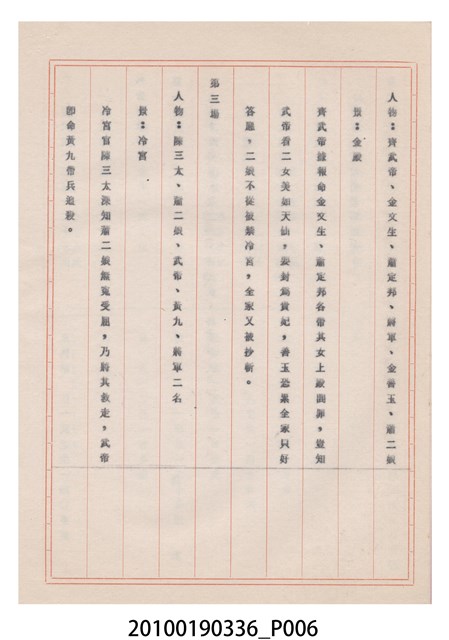 人物：齊武帝、金文生、蕭定邦、將軍、金善玉、蕭二娘
景：金殿
齊武帝據報命金文生、蕭定邦各帶其女上殿問罪，豈知
武帝看二女美如天仙，要封為貴妃，善玉恐累金家只好
答應，二娘不從被禁冷宮，金家又被抄斬。
第三場
人物：陳三太、蕭二娘、武帝、黃九、將軍二名
景：冷宮
冷宮官陳三太深知蕭二娘無冤受屈，乃將其救走，武帝
即命黃九帶兵追殺。
20100190336_P006